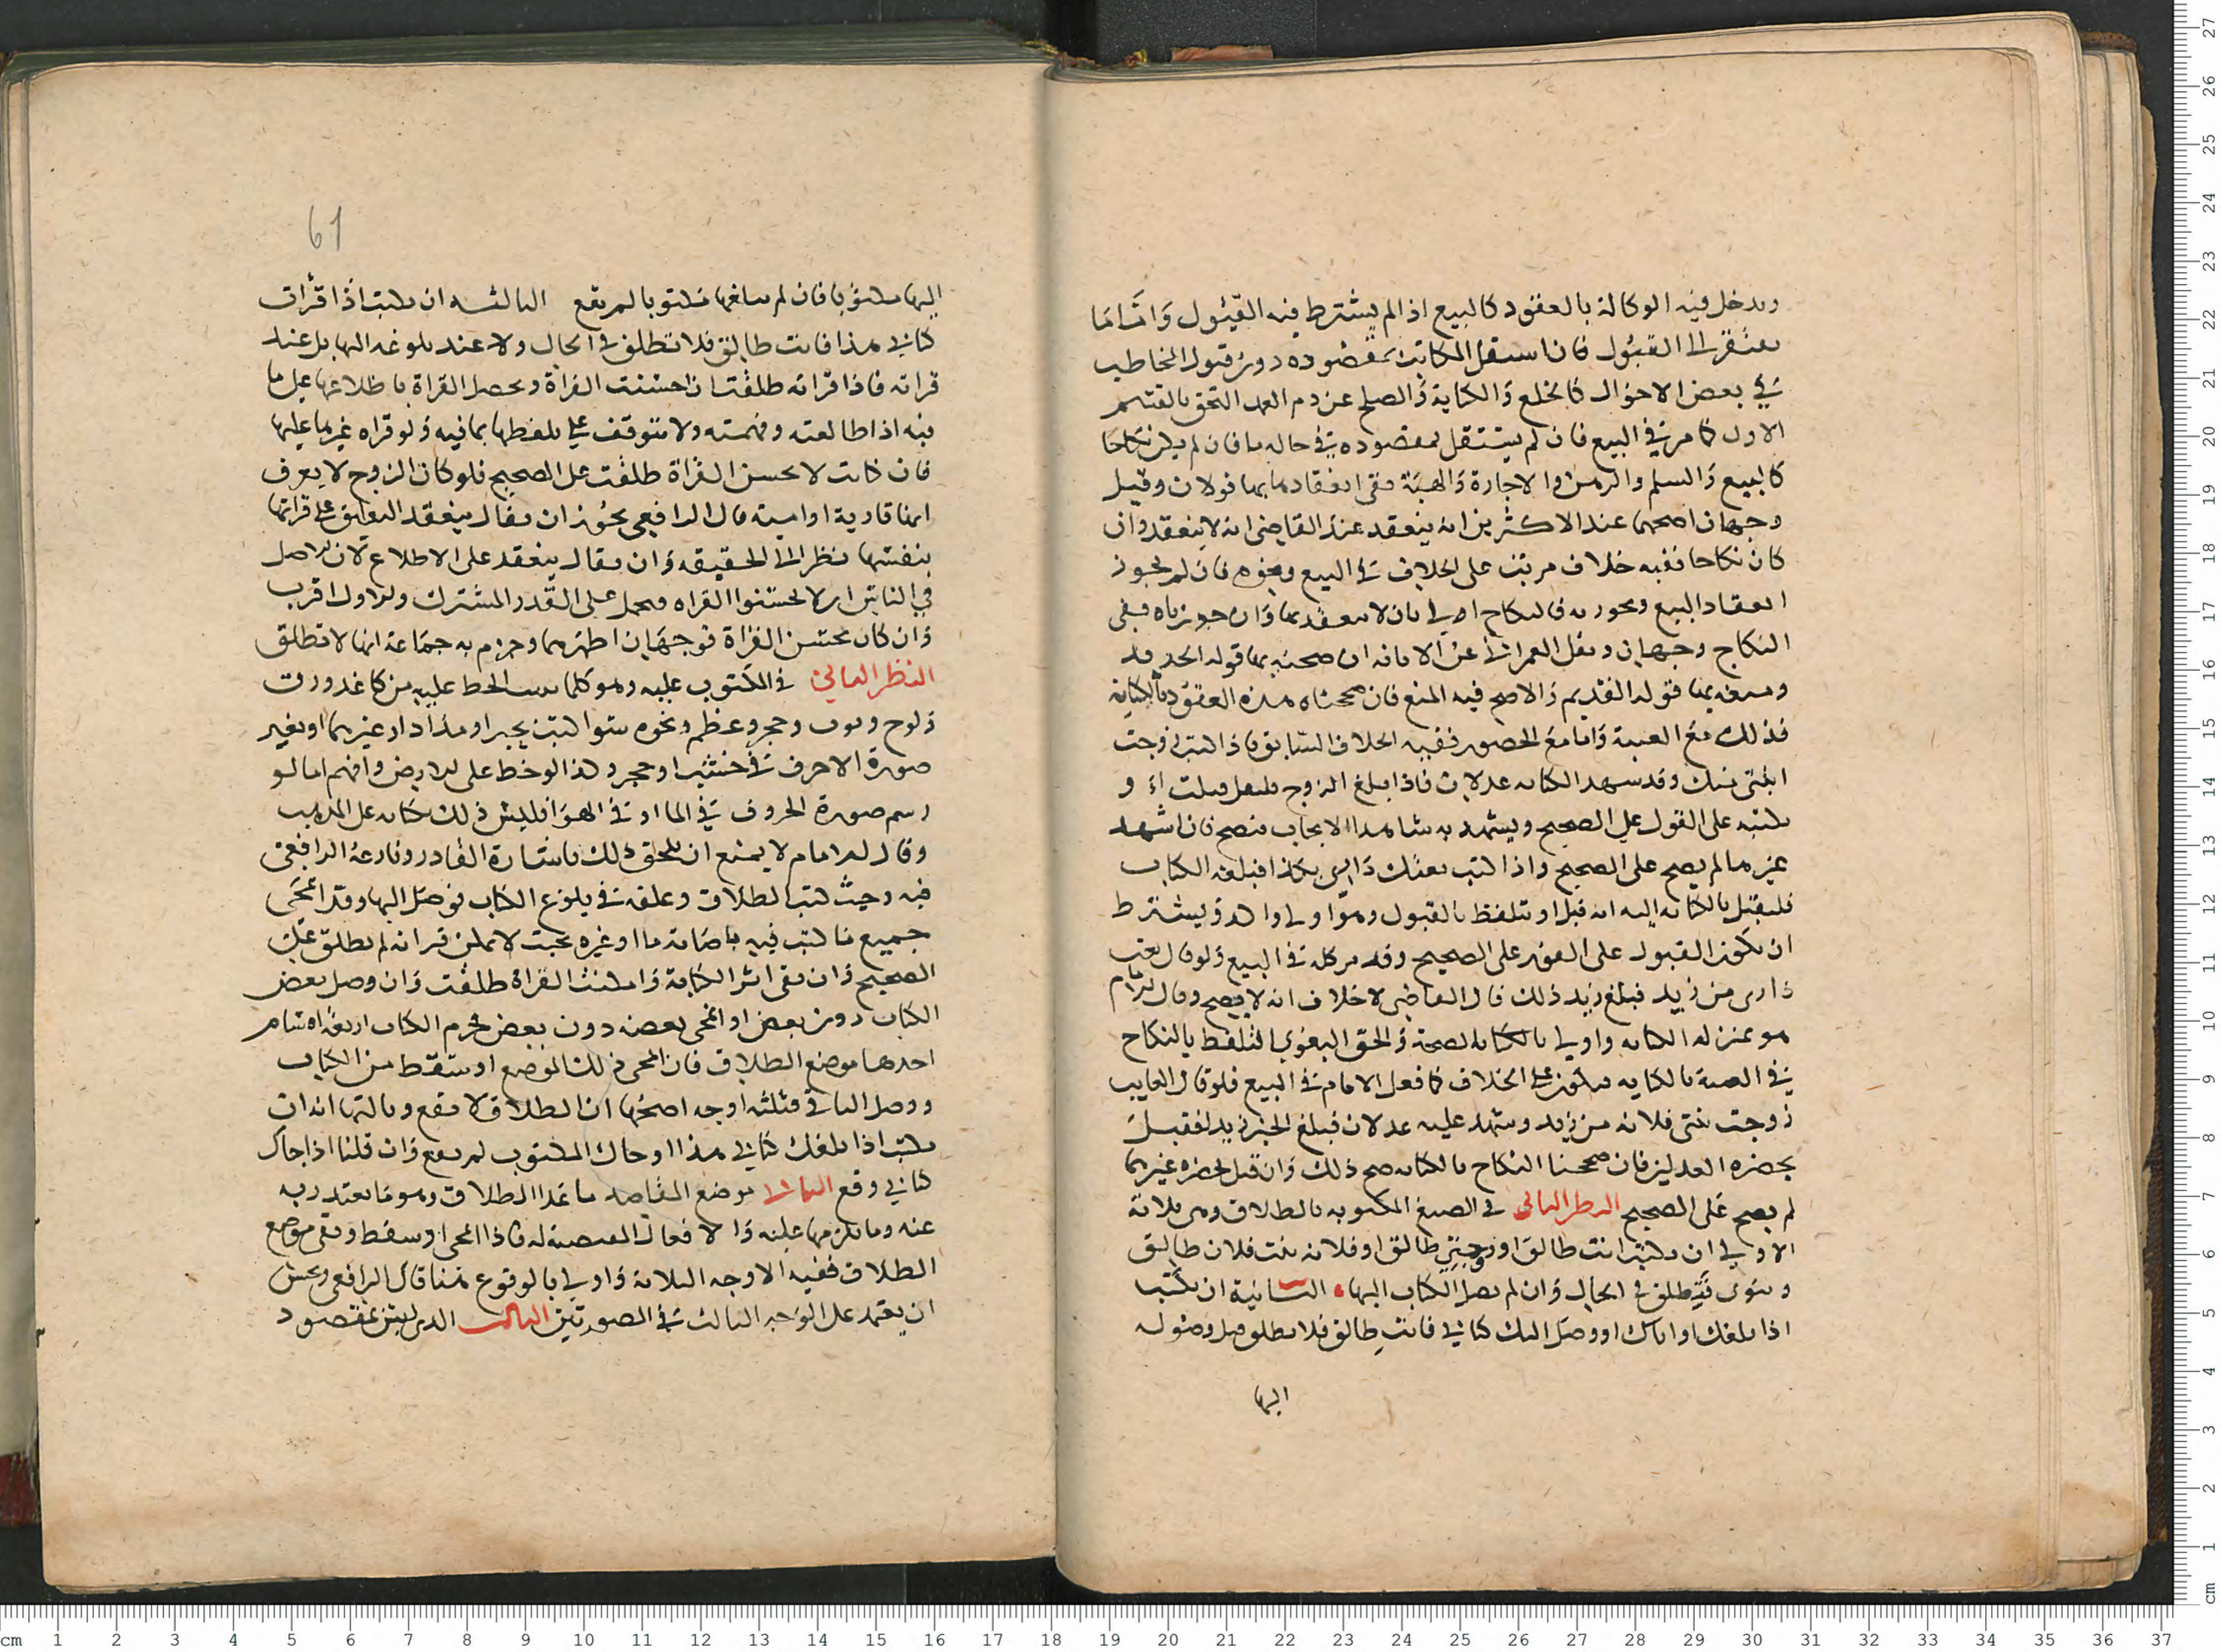 ويدخل فيه الوكالة بالعقود كالبيع اذا لم يشترط فيه القبول وَامَّا مَا
يفتقر الى القبُول فان استقل المكاتب بمقصوده دون قبول المخاطب
في بعض الاحوال كالخلع وَالكتابة وَالصلح عن دم العمد التحق بالقسم
الاول كما مر في البيع فان لم يستقل بمقصوده في حالة ما فان لم يكن نكاحا
كالبيع وَالسلم والرهن والاجارة وَالهبَة ففي انعقادها بها قولان وقيل
وجهان اصحهما عند الاكثرين انه ينعقد عند القاضي انه لا ينعقد وان
كان نكاحا ففيه خلاف مرتب على الخلاف في البيع ونحوه فان لم نجوز
انعقاد البيع ونحوه به فالنكاح اولى بان لا ينعقد بها وَان جوزناه ففي
النكاح وجهان ونقل العمراني عن الابانة ان صحته بها قوله الجديد
ومنعه بها قوله القديم وَالاصح فيه المنع فان صححنا هذه العقود بالكتابة
فذلك مع الغيبة وَاما مع الحضور ففيه الخلاف السابق فاذا كتب زوجت
ابنتي منك وقد شهد الكتابة عدلان فاذا بلغ الزوج فليقل قبلت او
يكتبه على القول على الصحيح ويشهد به شاهدا الايجاب فيصح فان اشهد
غيرهما لم يصح على الصحيح واذا كتب بعتك دَاري بكذا فبلغه الكتاب
فليقبل بالكتابة اليه انه قبل او يتلفظ بالقبول وهو اولى واكد وَيشترط
ان يكون القبول على الفور على الصحيح وقد مر كله في البيع وَلو قال بعت
دَاري من زيد فبلغ زيد ذلك قال القاضي لا خلاف انه لا يصح وقال الامام
هو بمنزلة الكتابة واولى بالكتابة لصحة وَالحق البغوي التلفظ بالنكاح
في الغيبة بالكتابة فيكون على الخلاف كما فعل الامام في البيع فلو قال الغايب
زوجت بنتي فلانة من زيد وشهد عليه عدلان فبلغ الخبر زيدا فقبل
بحضرة العدلين فان صححنا النكاح بالكتابة صح ذلك وَان قبل بحضرة غيرهما
لم يصح على الصحيح النظر الثاني في الصيغ المكتوبة بالطلاق وهي ثلاثة
الاولى ان يكتب انت طالق او زوجتي طالق او فلانة بنت فلان طالق
وينوى فَتطلق في الحال وَان لم يصل الكتاب اليها الثانية ان يكتب
اذا بلغك او اتاك او وصل اليك كتابي فانت طالق فلا تطلق قبل وصوله
اليها
61
اليها مكتوبا فان لم يبلغها مكتوبا لم يقع الثالثة ان يكتب اذا قرات
كتابي هذا فانت طالق فلا تطلق في الحال ولا عند بلوغه اليها بل عند
قراته فاذا قراته طلقت ان احسنت القراة ويحصل القراة باطلاعها على ما
فيه اذا طالعته وفهمته ولا تتوقف على تلفظها بما فيه وَلو قراه غيرها عليها
فان كانت لا تحسن القراة طلقت على الصحيح فلو كان الزوج لا يعرف
انها قارية او امية قال الرافعي يجوز ان يقال ينعقد التعليق على قراتها
بنفسها نظرا الى الحقيقة وَان يقال ينعقد على الاطلاع لان الاصل
في الناس ان لا يحسنوا القراه فيحمل على القدر المشترك والاول اقرب
وَان كان تحسن القراة فوجهان اظهرهما وجزم به جماعة انها لا تطلق
النظر الثاني في المكتوب عليه وهو كلما يثبت الخط عليه من كاغد ورق
وَلوح وثوب وحجر وعظم ونحوه سوا كتب بحبر او مداد او غيرهما او بغير
صورة الاحرف في خشب او حجر وكذا لو خط على الارض وافهم اما لو
رسم صورة الحروف في الما او في الهوَا فليس ذلك كتابة على المذهب
وقال الامام لا يمنع ان يلحق ذلك باشارة القادر ونازعه الرافعي
فيه وحيث كتب الطلاق وعلقه في بلوغ الكتاب فوصل اليها وقد انمحى
جميع ما كتب فيه باصابة ما او غيره بحيث لا يمكن قراته لم تطلق على
الصحيح وَان بقي اثر الكتابة وَامكنت القراة طلقت وَان وصل بعض
الكتاب دون بعض او انمحى بعضه دون بعض فجرم الكتاب اربعة اقسام
احدها موضع الطلاق فان انمحى ذلك الموضع او سقط من الكتاب
ووصل الباقي فثلثه اوجه اصحها ان الطلاق لا يقع وثالثها انه ان
يكتب اذا بلغك كتابي هذا او جاك المكتوب لم يقع وَان قلنا اذا جاك
كتابي وقع الثاني موضع المقاصد ما عدا الطلاق وهو ما يعتذر به
عنه وما يلزمها عليه وَالافعال المقتضية له فاذا انمحى او سقط وبقي موضع
الطلاق ففيه الاوجه الثلاثة وَاولى بالوقوع هنا قال الرافعي ويحسن
ان يعتمد على الوَجه الثالث في الصورتين الثالث الذي ليس بمقصود